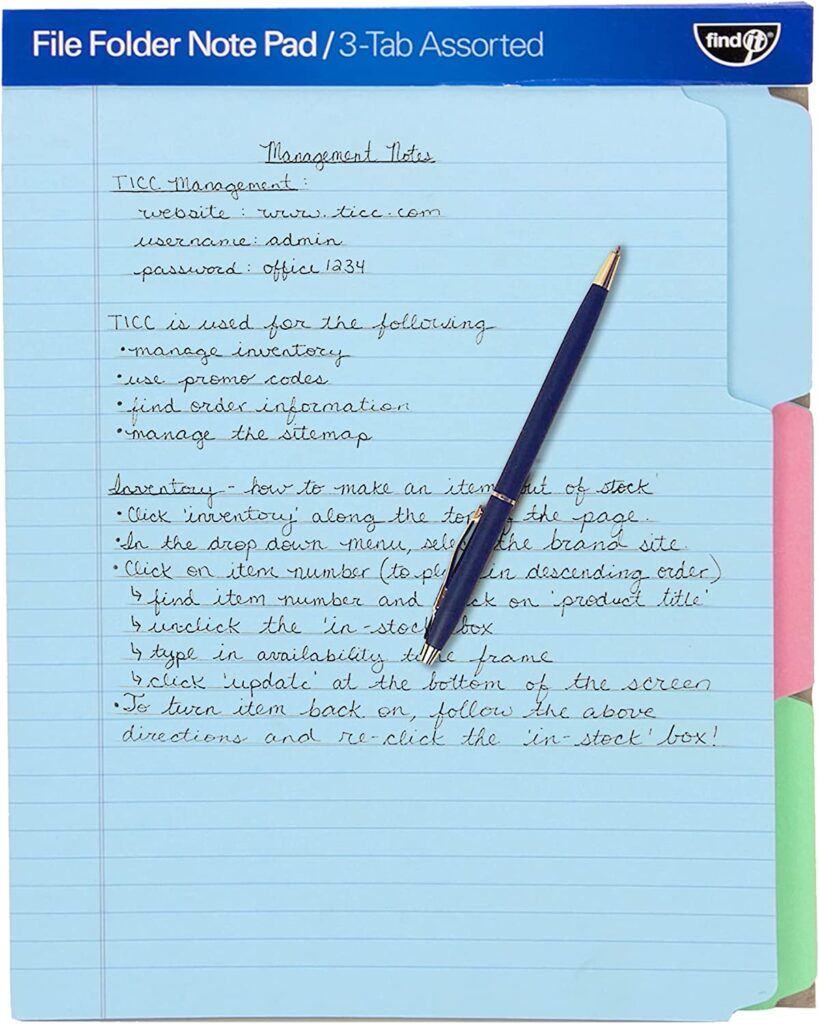 File Folder Note Pad / 3-Tab Assorted
find it®
Management Notes
TICC Management:
website: www.ticc.com
username: admin
password: office1234
TICC is used for the following
•manage inventory
•use promo codes
•find order information
•manage the sitemap
Inventory - how to make an item out of stock'
•Click 'inventory' along the top the page.
•In the drop down menu, the brand site.
•Click on item number (to in descending order)
↳ find item number and on 'product title'
↳ unclick the 'in-stock box
↳ type in availability frame
↳ click 'update' at the bottom of the screen
•To turn item back on, follow the above
directions and re-click the 'in-stock' box!